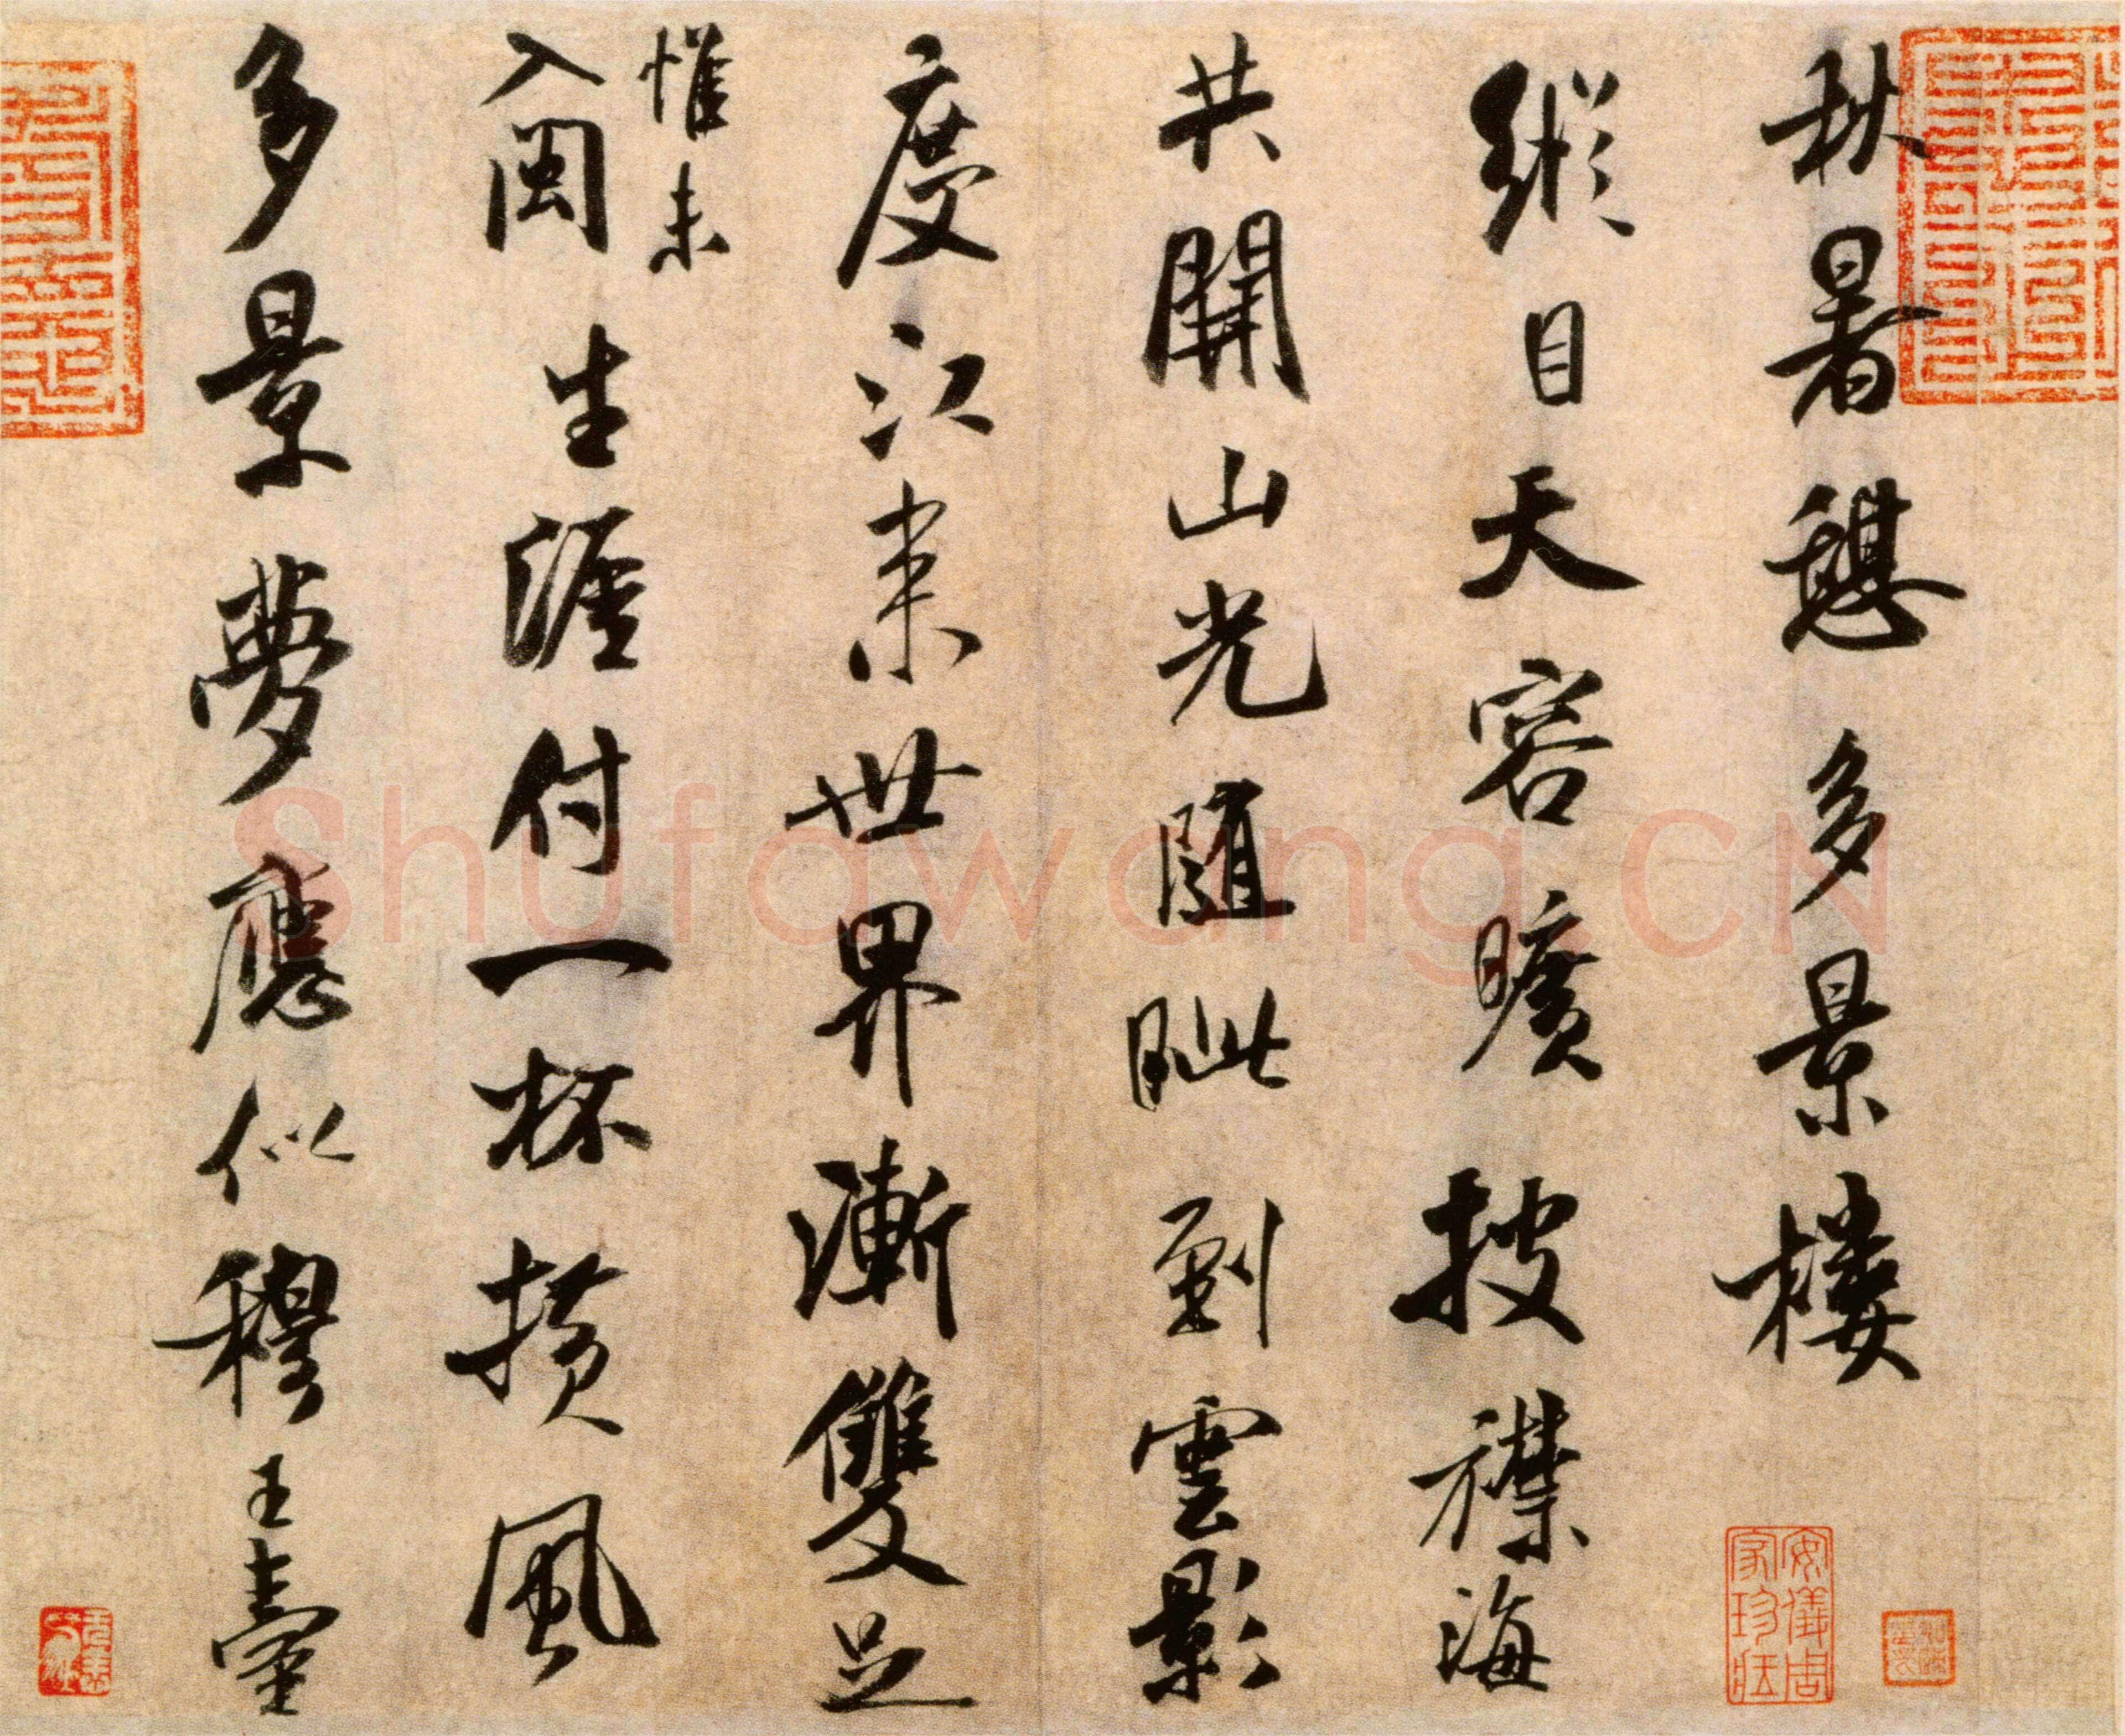 秋暑憩多景樓
縱目天容曠披襟海
共開山光隨眦到雲影
度江来世界漸雙足
惟未
入閩生涯付一杯横風
多景夢應似穆王臺
安儀周
家珍藏
Shufawang.CN